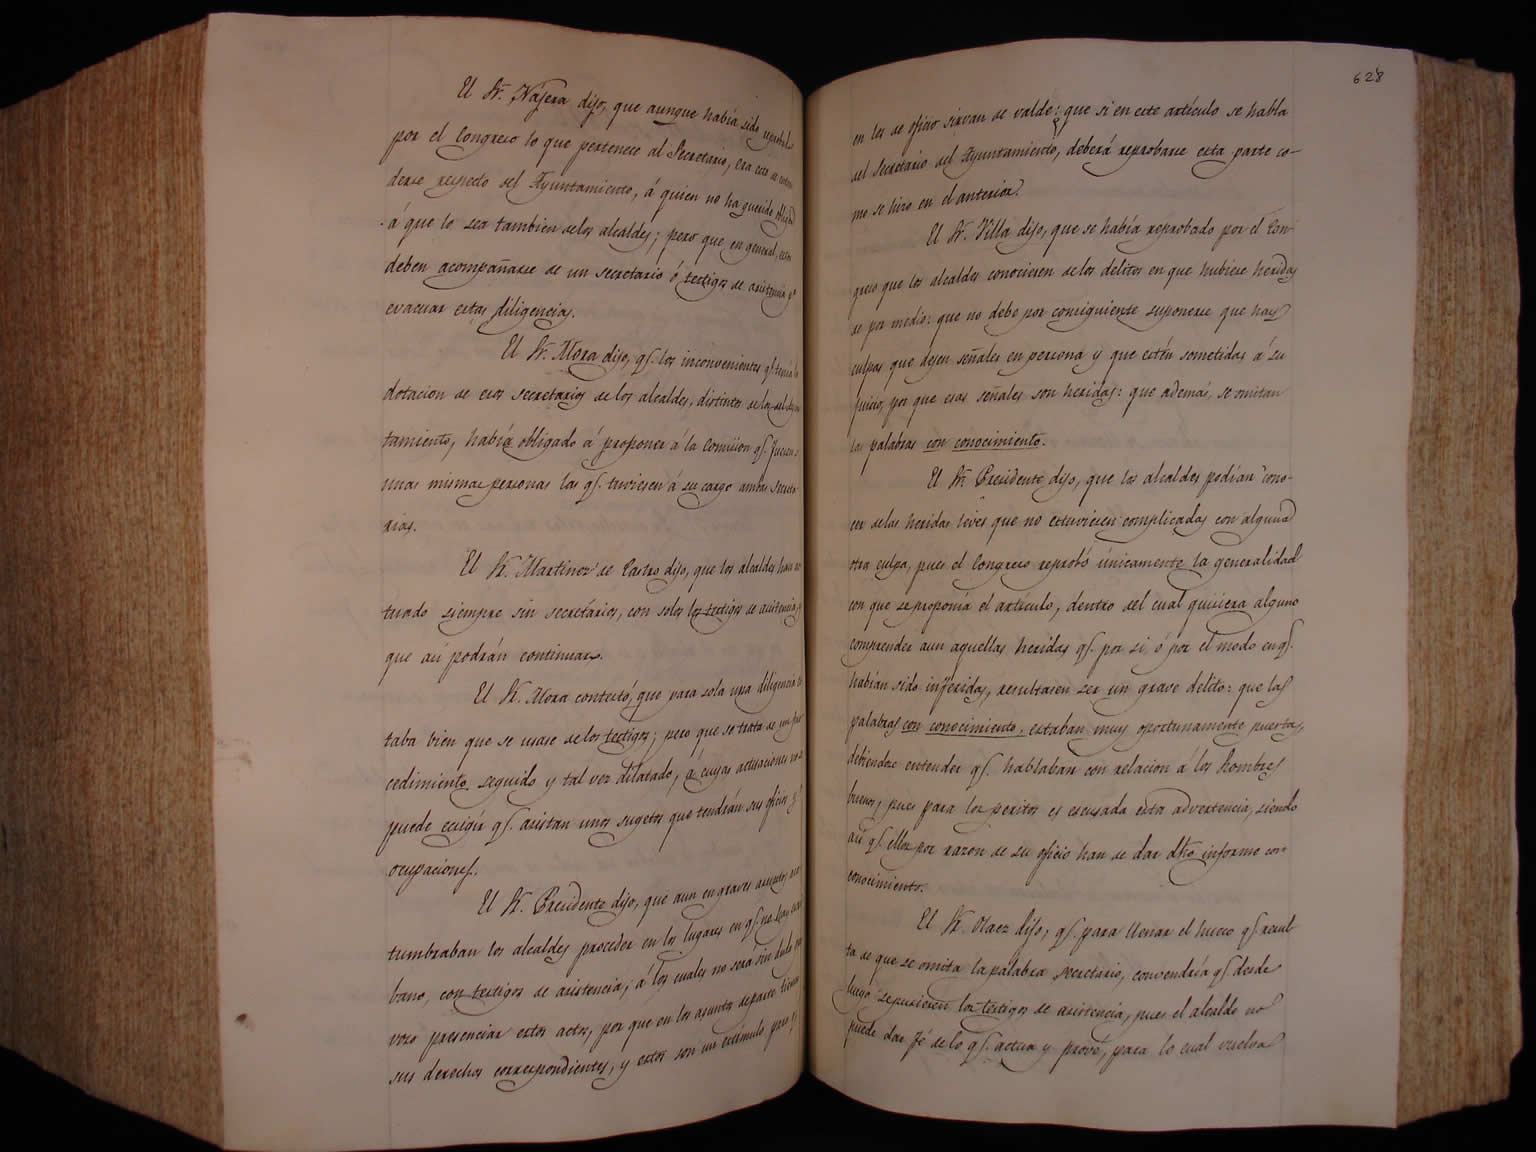 El Sr. Nájera dijo, que aunque había sido reprobado
por el Congreso lo que pertenece al Secretario, era esto de enten
derse respecto del Ayuntamiento, á quien no ha querido
á que lo sea tambien de los alcaldes; pero que en general, estos
deben acompañarse de un secretario ó testigos de asistencia pa
evacuar estas diligencias.
El Sr. Mora dijo, qe. los inconvenientes qe. tenía la
dotacion de esos secretarios de los alcaldes, distintos de los del Ayun
tamiento, había obligado á proponer á la Comision qe. fuesen
unas mismas personas las qe. tuviesen á su cargo ambas Secreta
rías.
El Sr. Martinez de Castro dijo, que los alcaldes han ac
tuado siempre sin secretarios, con solos los testigos de asistencia, y
que así podrán continuar.
El Sr. Mora contestó, que para sola una diligencia es
taba bien que se usase de los testigos; pero que se trata de un pro
cedimiento seguido y tal vez dilatado, á cuyas actuaciones no se
puede ecsigir qe. asistan unos sugetos que tendrán sus oficios y
ocupaciones.
El Sr. Presidente dijo, que aun en graves asuntos acos
tumbraban los alcaldes proceder en los lugares en qe. no hay escri
bano, con testigos de asistencia, á los cuales no será sin duda gra
voso presenciar estos actos, por que en los asuntos de parte tienen
sus derechos correspondientes, y estos son un estímulo para qe.
628
en los de oficio sirvan de valde: que si en este artículo se habla
del Secretario del Ayuntamiento, deberá reprobarse esta parte co-
mo se hizo en el anterior.
El Sr. Villa dijo, que se había reprobado por el Con-
greso que los alcaldes conociesen de los delitos en que hubiese heridas
de por medio: que no debe por consiguiente suponerse que hay
culpas que dejen señales en persona y que estén sometidas á su
juicio, por que esas señales son heridas: que además, se omitan
las palabras con conocimiento.
El Sr. Presidente dijo, que los alcaldes podían cono-
cer de las heridas leves que no estuviesen complicadas con alguna
otra culpa, pues el Congreso reprobó únicamente la generalidad
con que se proponía el artículo, dentro del cual quisiera alguno
comprender aun aquellas heridas qe. por sí, ó por el modo en qe.
habían sido inferidas, resultasen ser un grave delito: que las
palabras con conocimiento, estaban muy oportunamente puestas,
debiendose entender qe. hablaban con relacion á los hombres
buenos, pues para los peritos es escusada esta advertencia, siendo
así qe. ellos por razon de su oficio han de dar dho informe con
conocimiento.
El Sr. Olaez dijo, qe. para llenar el hueco qe. resul-
ta de que se omita la palabra secretario, convendría qe. desde
luego se pusiesen los testigos de asistencia, pues el alcalde no
puede dar fé de lo qe. actua y provee, para lo cual vuelva